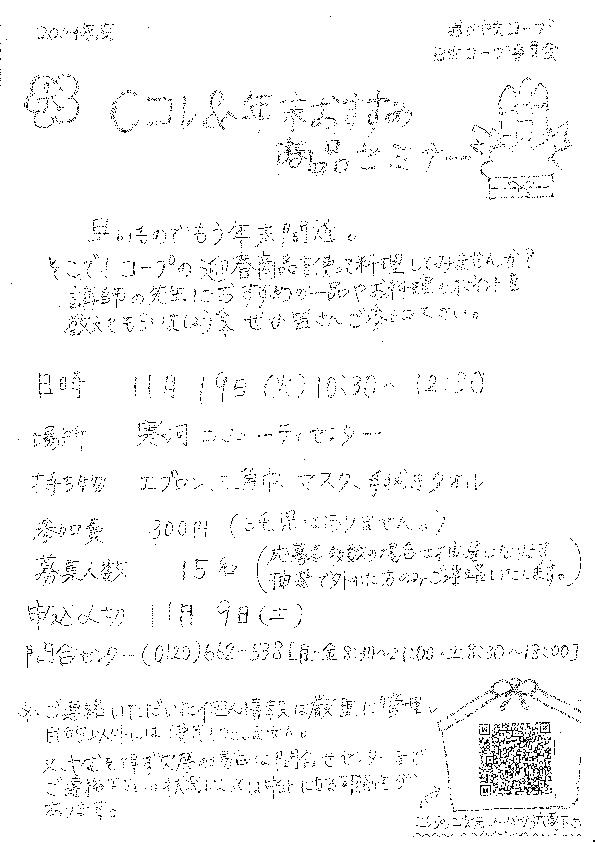 2024年度
コープ
コープ委員会
Cコレ&年末おすすめ
商品セミナー
早いものでもう年末間近。
そこで!コープの迎春商品を使って料理してみませんか?
講師の先生におすすめの一品やお料理のポイントを
教えてもらいましょう
日時 11月19日(火)10:30~12:30
場所 寒河コミュニティセンター
持ち物 エプロン、三角巾、マスク、手拭きタオル
参加費 300円(ありません。)
募集人数 15名(応募者多数の場合は抽選になります
抽選で外れた方のみご連絡いたします。)
申込〆切 11月9日(土)
問合センター(0120)662-538[月-金8:30~21:00・土8:30~18:00]
※ご連絡いただいた個人情報は厳重に管理。
目的以外には使用いたしません。
又、やむを得ず欠席の場合は問合せセンターまで
ご連絡下さい。状況によっては中止になる可能性が
あります。